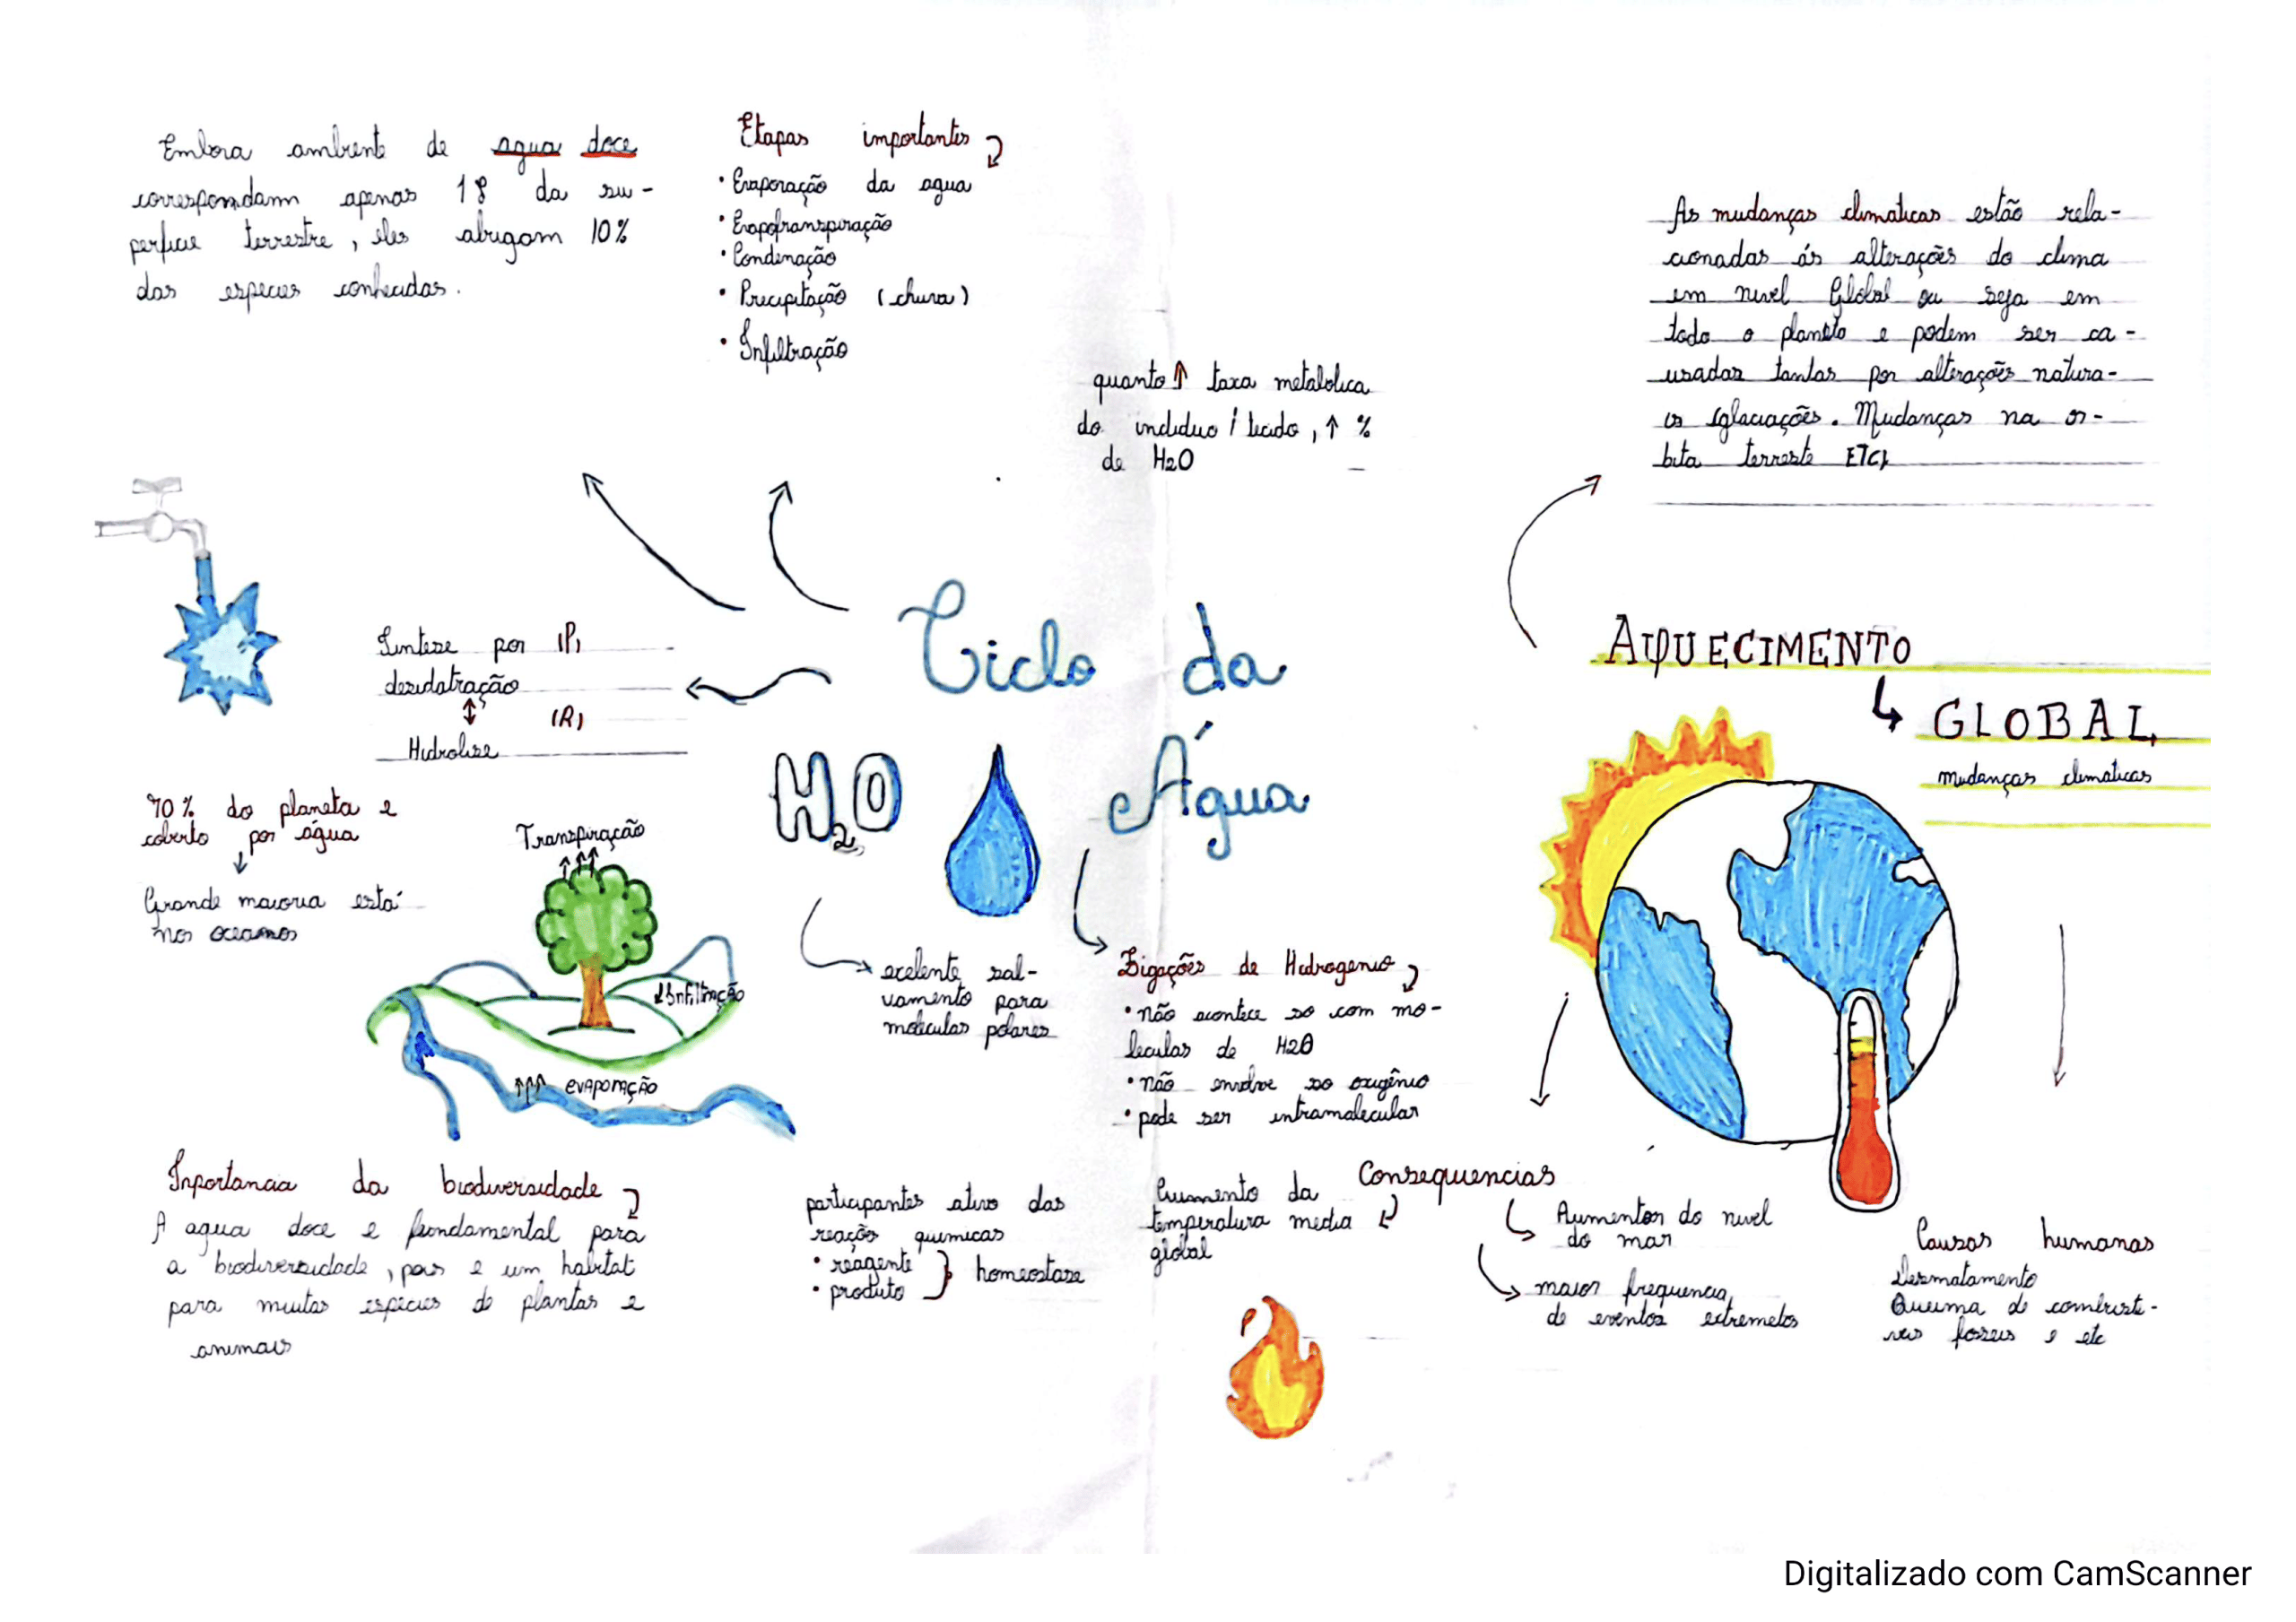 Embora ambiente de agua doce
correspondam apenas 1% da su-
perficie terrestre, eles abrigam 10%
das especies conhecidas.
Etapas importantes
• Evaporação da agua
• Evapotranspiração
• Condenação
• Precipitação (chuva)
• Infiltração
quanto ↑ taxa metabolica
do indiduo / tecido, ↑ %
de H2O
As mudanças climaticas estão rela-
cionadas ás alterações do clima
em nivel Global ou seja em
todo o planeta e podem ser ca-
usadas tantas por alterações natura-
is (glaciações. Mudanças na or-
bita terreste ETC)
Sintese por (P)
desidatração
↕ (R)
Hidrolise
Ciclo da
Água
H2O
AQUECIMENTO
GLOBAL
mudanças climaticas
70% do planeta e
coberto por água
↓
Grande maioria está
nos oceanos
Transpiração
Infiltração
evaporação
excelente sol-
vamento para
moleculas polares
Ligações de Hidrogenio
• não acontece so com mo-
leculas de H2O
• não envolve so oxigênio
• pode ser intramolecular
Inportancia da biodiversidade
A agua doce e fundamental para
a biodiversidade, pois e um habitat
para muitas espécies de plantas e
animais
participantes ativo das
reação quimicas
• reagente
• produto
homeostase
Consequencias
Aumento da
temperatura media
global
Aumentor do nivel
do mar
maior frequencia
de eventos extremetos
Causas humanas
Desmatamento
Queima de combusti-
veis fosseis e etc
Digitalizado com CamScanner